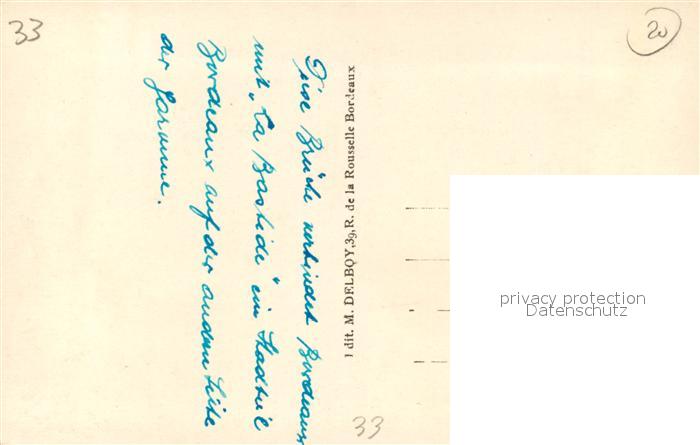 33
20
Diese Brücke verbindet Bordeaux
mit „La Bastide" ein Stadtteil
Bordeaux auf der andern Seite
der Garonne.
Edit. M. DELBOY, 39, R. de la Rousselle Bordeaux
privacy protection
Datenschutz
33